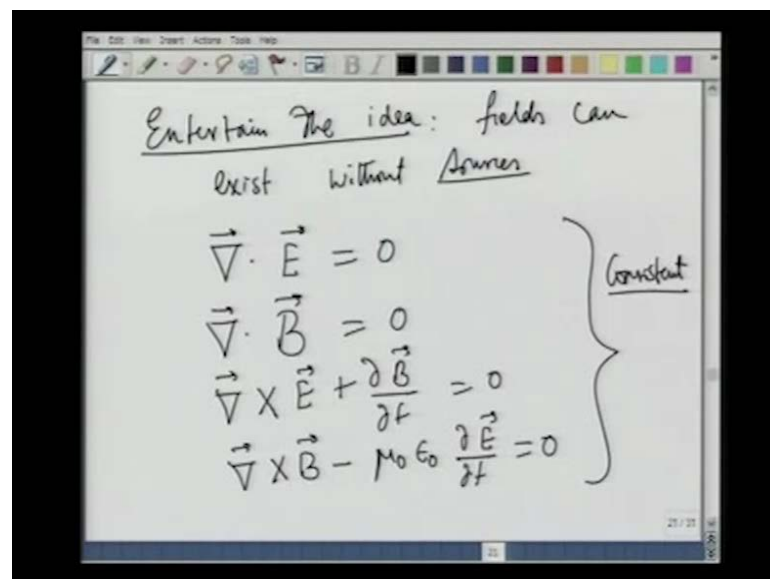 File Edit View Insert Actions Tools Help
B I
Entertain The idea: fields can
exist without Sources
∇⃗ · E⃗ = 0
∇⃗ · B⃗ = 0
∇⃗ × E⃗ + ∂B⃗/∂t = 0
∇⃗ × B⃗ − μ₀ ε₀ ∂E⃗/∂t = 0
Consistent
21